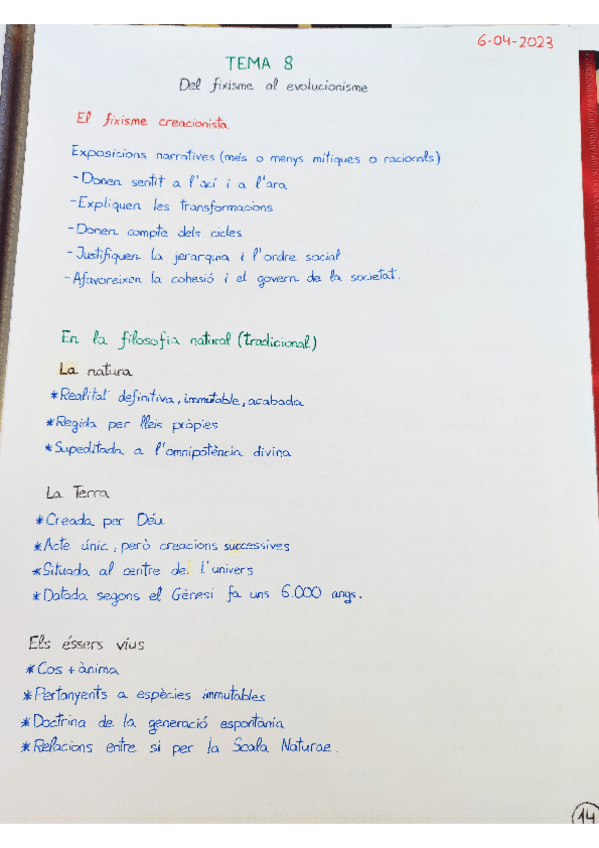 6-04-2023
TEMA 8
Del fixisme al evolucionisme
El fixisme creacionista
Exposicions narratives (més o menys mítiques o racionals)
- Donen sentit a l'ací i a l'ara
- Expliquen les transformacions
- Donen compte dels cicles
- Justifiquen la jerarquia i l'ordre social
- Afavoreixen la cohesió i el govern de la societat.
En la filosofia natural (tradicional)
La natura
* Realitat definitiva, immutable, acabada
* Regida per lleis pròpies
* Supeditada a l'omnipotència divina
La Terra
* Creada per Déu
* Acte únic, però creacions successives
* Situada al centre de l'univers
* Datada segons el Gènesi fa uns 6.000 anys.
Els éssers vius
* Cos + ànima
* Pertanyents a espècies immutables
* Doctrina de la generació espontània
* Relacions entre si per la Scala Naturae.
14